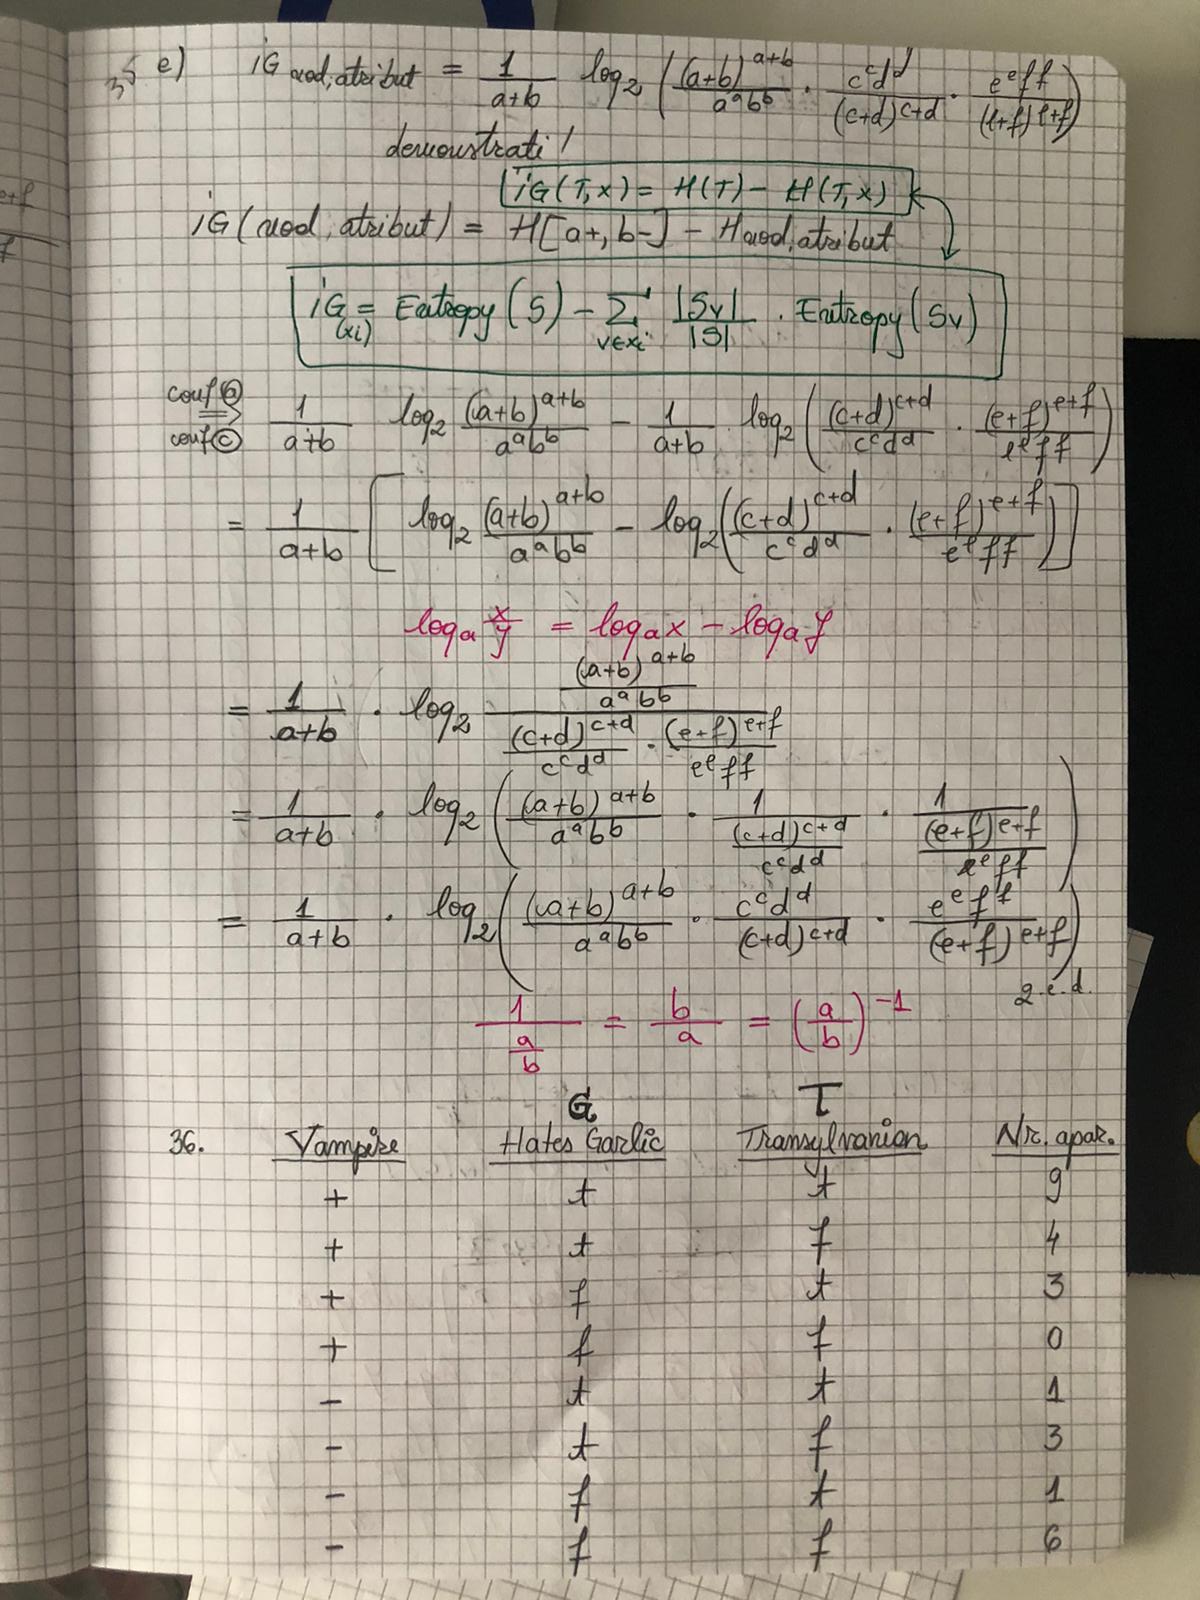 35 e) iG nod,atribut = 1/(a+b) log₂ ( (a+b)^(a+b)/(a^a b^b) · c^c d^d/(c+d)^(c+d) · e^e f^f/(e+f)^(e+f) )
demonstrati!
iG(T,x) = H(T) - H(T,x)
iG(nod,atribut) = H[a+, b-] - Hnod,atribut
iG(xi) = Entropy(S) - Σ_(v∈xi) |Sv|/|S| · Entropy(Sv)
conf ⓑ
conf ⓒ ⇒ 1/(a+b) log₂ (a+b)^(a+b)/(a^a b^b) - 1/(a+b) log₂ ( (c+d)^(c+d)/(c^c d^d) · (e+f)^(e+f)/(e^e f^f) )
= 1/(a+b) [ log₂ (a+b)^(a+b)/(a^a b^b) - log₂ ( (c+d)^(c+d)/(c^c d^d) · (e+f)^(e+f)/(e^e f^f) ) ]
log_a x/y = log_a x - log_a y
= 1/(a+b) · log₂ ((a+b)^(a+b)/(a^a b^b)) / ((c+d)^(c+d)/(c^c d^d) · (e+f)^(e+f)/(e^e f^f))
= 1/(a+b) · log₂ ( (a+b)^(a+b)/(a^a b^b) · 1/((c+d)^(c+d)/(c^c d^d)) · 1/((e+f)^(e+f)/(e^e f^f)) )
= 1/(a+b) · log₂ ( (a+b)^(a+b)/(a^a b^b) · c^c d^d/(c+d)^(c+d) · e^e f^f/(e+f)^(e+f) )
2.e.d.
1/(a/b) = b/a = (a/b)^-1
G T
36. Vampire Hates Garlic Transylvanian Nr. apar.
+ t t 9
+ t f 4
+ f t 3
+ f f 0
- t t 1
- t f 3
- f t 1
- f f 6